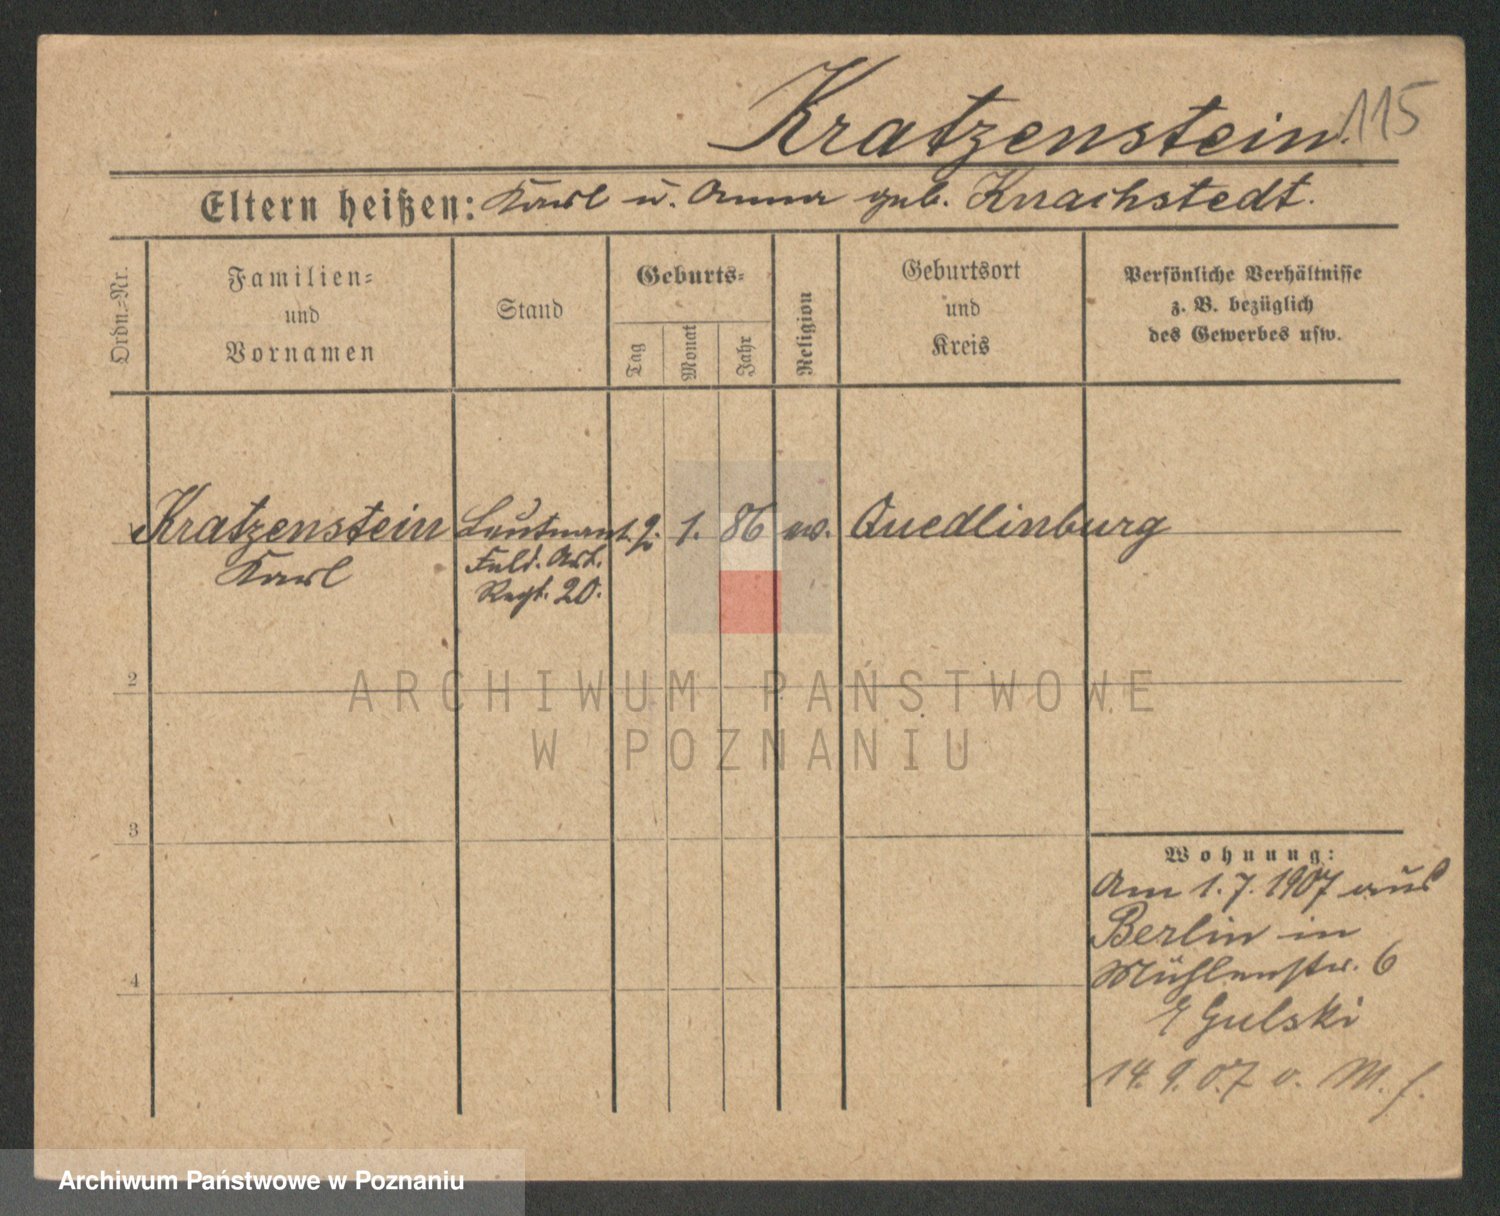 Kratzenstein. 115
Eltern heißen: Karl u. Anna geb. Knachstedt.
Ordn.=Nr.
Familien=
und
Vornamen
Stand
Geburts=
Tag
Monat
Jahr
Religion
Geburtsort
und
Kreis
Persönliche Verhältnisse
z. B. bezüglich
des Gewerbes usw.
Kratzenstein Leutnant. 2. 1. 86 ev. Quedlinburg
Karl
Feld. Art.
Regt. 20.
2
3
4
Wohnung:
Am 1.7.1907 aus
Berlin in
Mühlenstr. 6
Gulski
14.9.07 v. M. f.
ARCHIWUM PAŃSTWOWE
W POZNANIU
Archiwum Państwowe w Poznaniu